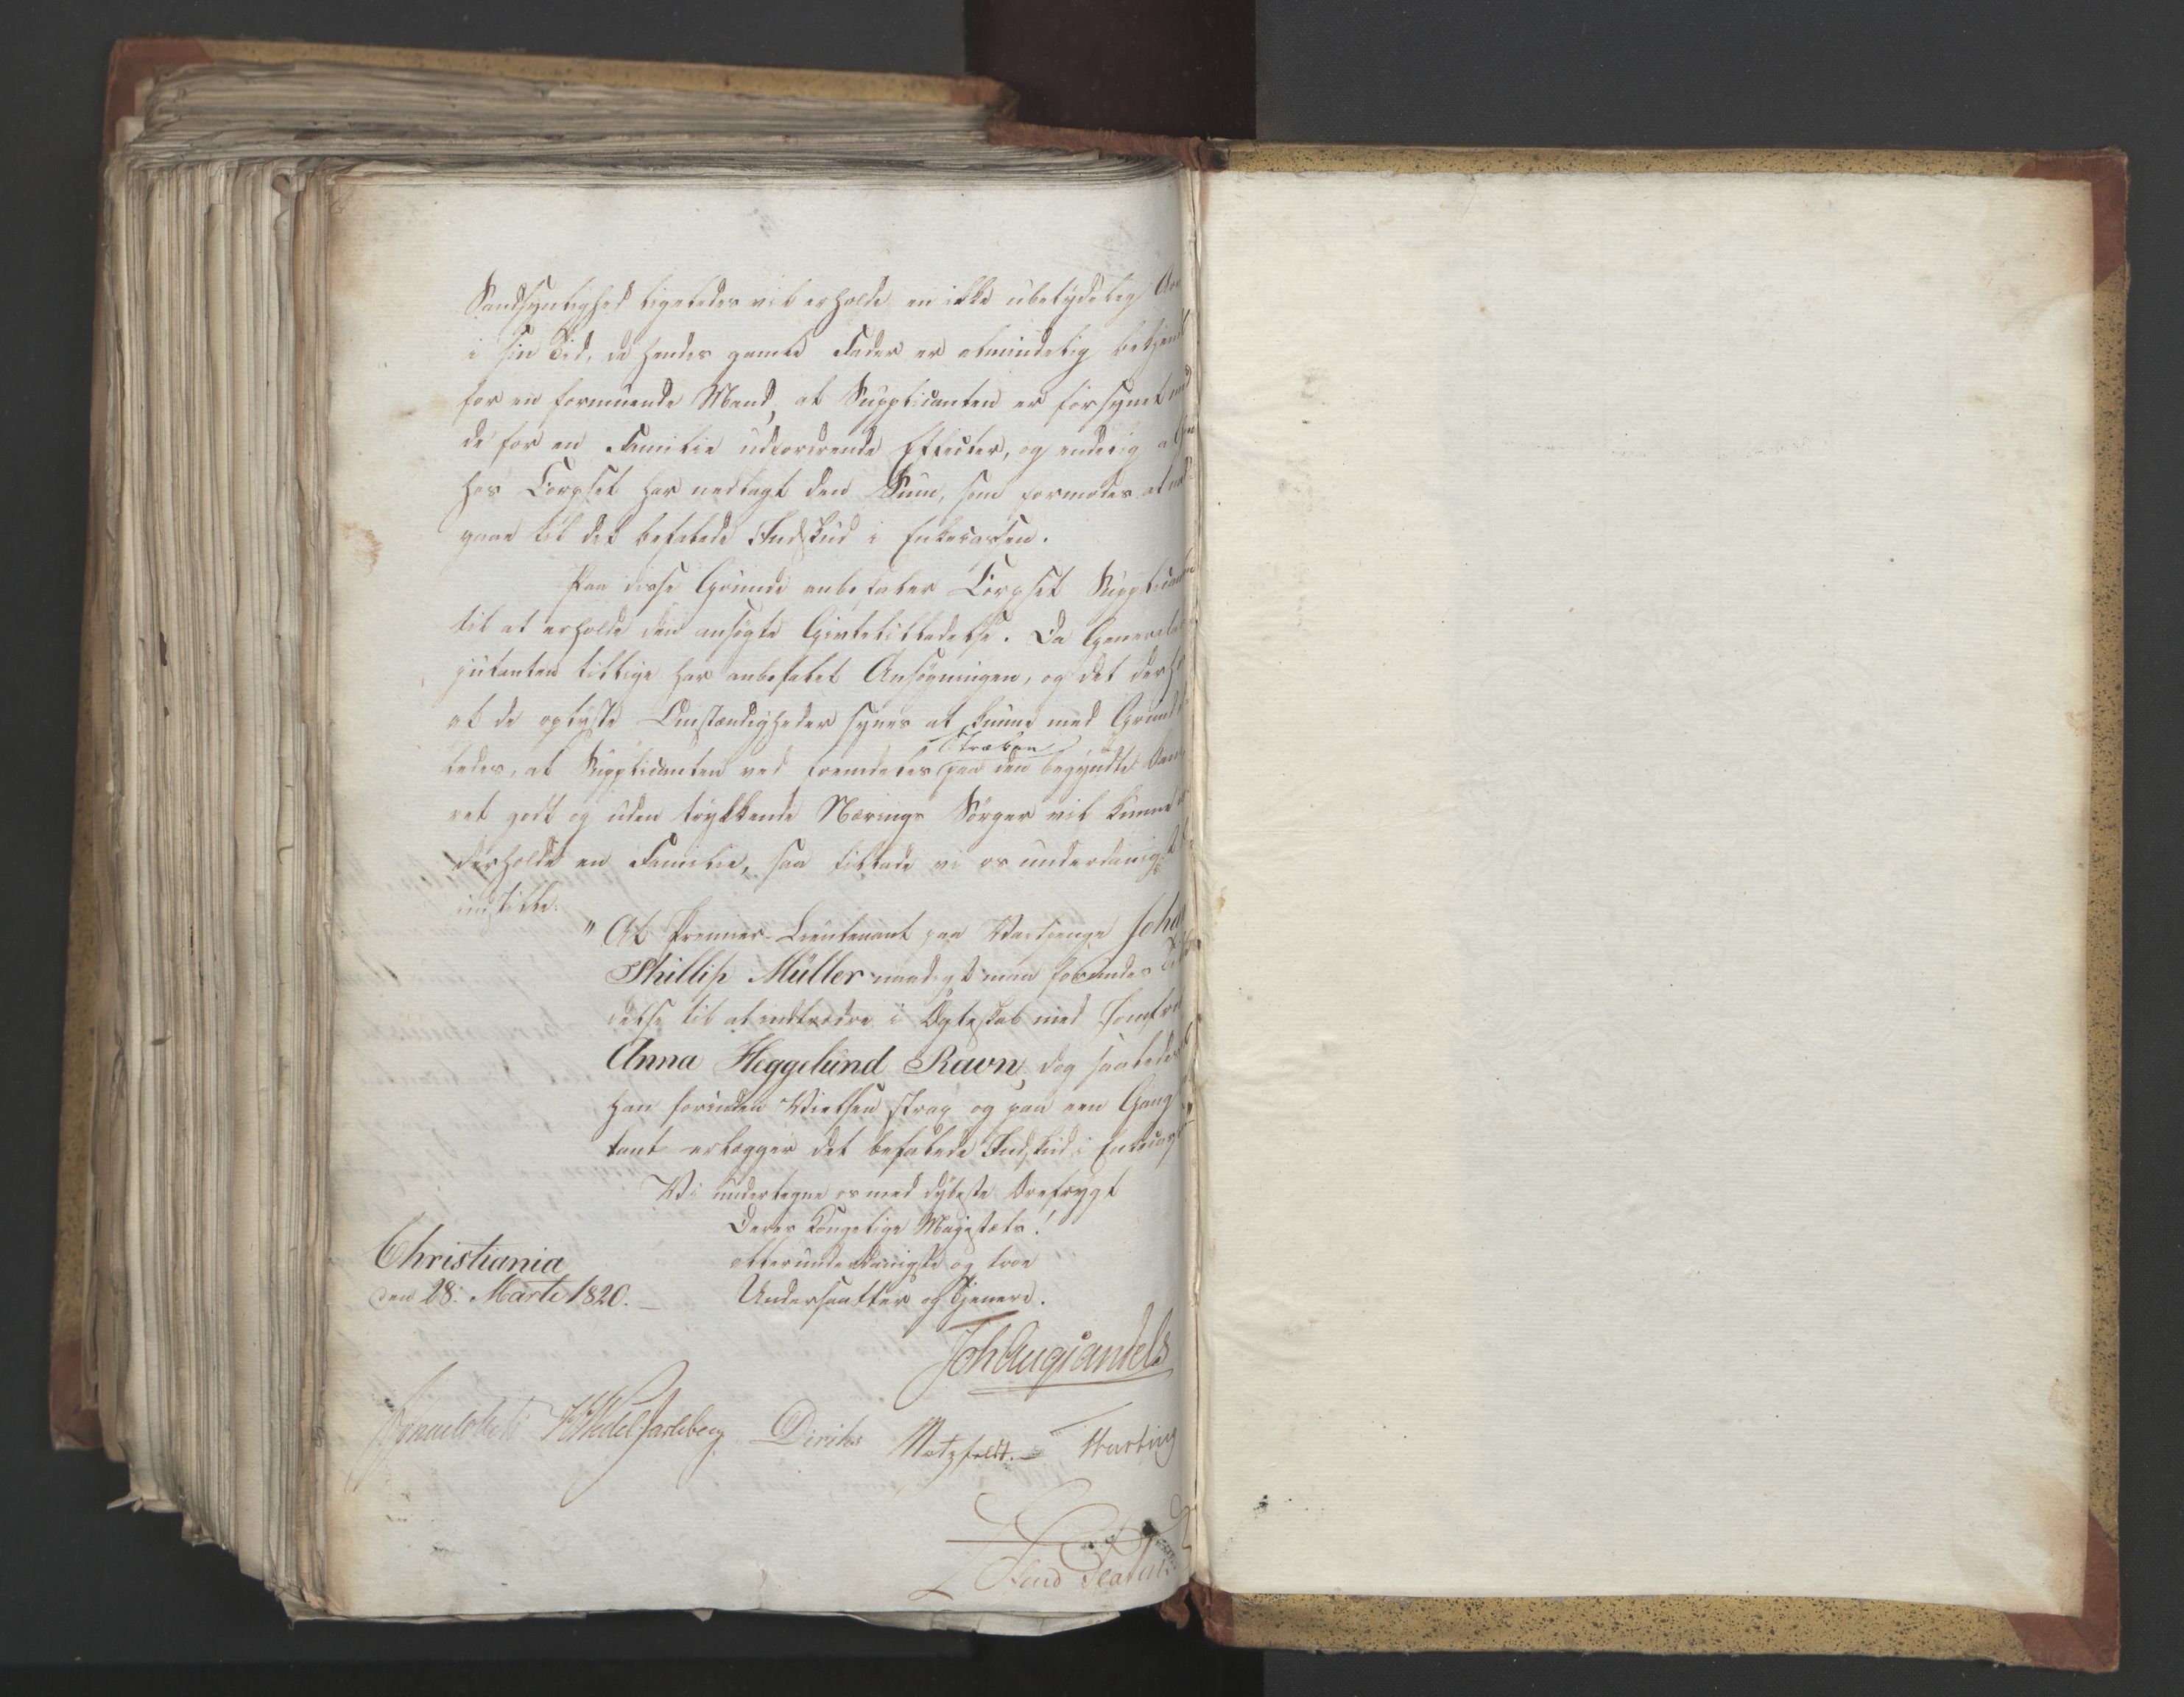 Sandsynlighed ligeledes vil erholde en ikke ubetydelig Arv
i sin Tid, da hendes gamle Fader er almindelig bekjendt
for en formuende Mand, at Supplicanten er forsynet med
de for en Familie udfordrende Effecter, og endelig at han
hos Corpset har nedlagt den Sum, som formodes at med-
gaae til det befalede Indskud i Enkecassen.
Paa disse Grunde anbefaler Corpset Supplicanten
til at erholde den ansøgte Giftetilladelse. Da Generalad-
jutanten tillige har anbefalet Ansøgningen, og det
af de oplyste Omstændigheder synes at kunne med Grund
Stræben
ledes, at Supplicanten ved fremdeles paa den begyndte
ret godt og uden trykkende Nærings Sorger vil kunne un-
derholde en Familie, saa tillade vi os underdanigst at
indstille:
"At Premier-Lieutenant paa Vartpenge Johan
Phillip Müller naadigst maa forundes Tilla-
delse til at indtræde i Ægteskab med Jomfru
Anna Heggelund Ravn, dog saaledes at
han forinden Vielsen strax og paa een Gang
tant erlægger det befalede Indskud i Enkecassen"
Vi undertegne os med dybeste Ærefrygt
Deres Kongelige Majestæts!
allerunderdanigste og troe
Undersaatter og Tjenere.
Christiania
den 28. Marti 1820.
Joh Aug Sandels
Sommerhielm HWedel Jarlsberg Diriks Motzfeldt. Hasting